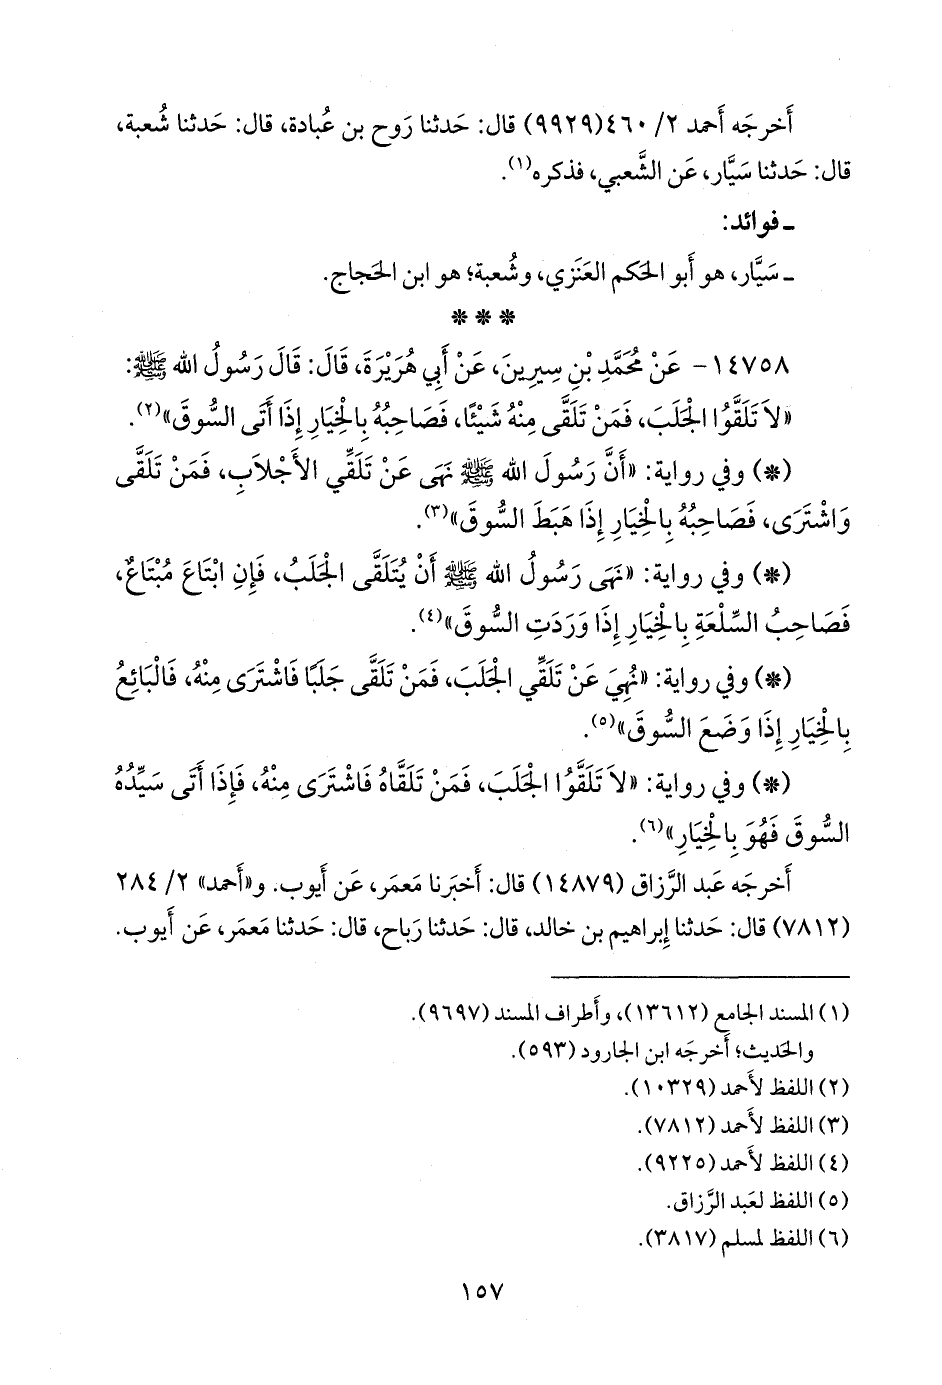 أَخرجَه أَحمد ٢/ ٤٦٠(٩٩٢٩) قال: حَدثنا رَوح بن عُبادة، قال: حَدثنا شُعبة،
قال: حَدثنا سَيَّار، عَن الشَّعبي، فذكره(١).
ـ فوائد:
ـ سَيَّار، هو أَبو الحَكم العَنَزي، وشُعبة؛ هو ابن الحَجاج.
* * *
١٤٧٥٨- عَنْ مُحَمَّدِ بْنِ سِيرِينَ، عَنْ أَبِي هُرَيْرَةَ، قَالَ: قَالَ رَسُولُ الله ﷺ:
«لاَ تَلَقَّوُا الْجَلَبَ، فَمَنْ تَلَقَّى مِنْهُ شَيْئًا، فَصَاحِبُهُ بِالْخِيَارِ إِذَا أَتَى السُّوقَ»(٢).
(*) وفي رواية: «أَنَّ رَسُولَ الله ﷺ نَهَى عَنْ تَلَقِّي الأَجْلاَبِ، فَمَنْ تَلَقَّى
وَاشْتَرَى، فَصَاحِبُهُ بِالْخِيَارِ إِذَا هَبَطَ السُّوقَ»(٣).
(*) وفي رواية: «نَهَى رَسُولُ الله ﷺ أَنْ يُتَلَقَّى الْجَلَبُ، فَإِنِ ابْتَاعَ مُبْتَاعٌ،
فَصَاحِبُ السِّلْعَةِ بِالْخِيَارِ إِذَا وَرَدَتِ السُّوقَ»(٤).
(*) وفي رواية: «نُهِيَ عَنْ تَلَقِّي الْجَلَبَ، فَمَنْ تَلَقَّى جَلَبًا فَاشْتَرَى مِنْهُ، فَالْبَائِعُ
بِالْخِيَارِ إِذَا وَضَعَ السُّوقَ»(٥).
(*) وفي رواية: «لاَ تَلَقَّوُا الْجَلَبَ، فَمَنْ تَلَقَّاهُ فَاشْتَرَى مِنْهُ، فَإِذَا أَتَى سَيِّدُهُ
السُّوقَ فَهُوَ بِالْخِيَارِ»(٦).
أَخرجَه عَبد الرَّزاق (١٤٨٧٩) قال: أَخبَرنا مَعمَر، عَن أَيوب. و«أَحمد» ٢/ ٢٨٤
(٧٨١٢) قال: حَدثنا إِبراهيم بن خالد، قال: حَدثنا رَباح، قال: حَدثنا مَعمَر، عَن أَيوب.
(١) المسند الجامع (١٣٦١٢)، وأَطراف المسند (٩٦٩٧).
والحَديث؛ أَخرجَه ابن الجارود (٥٩٣).
(٢) اللفظ لأَحمد (١٠٣٢٩).
(٣) اللفظ لأَحمد (٧٨١٢).
(٤) اللفظ لأَحمد (٩٢٢٥).
(٥) اللفظ لعَبد الرَّزاق.
(٦) اللفظ لمسلم (٣٨١٧).
١٥٧